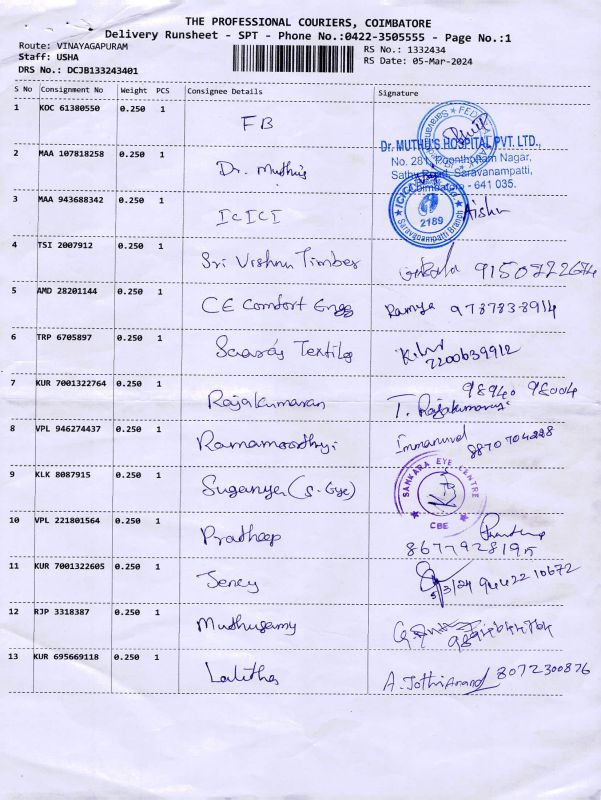 THE PROFESSIONAL COURIERS, COIMBATORE
Delivery Runsheet - SPT - Phone No.:0422-3505555 - Page No.:1
Route: VINAYAGAPURAM RS No.: 1332434
Staff: USHA RS Date: 05-Mar-2024
DRS No.: DCJB133243401
S No Consignment No Weight PCS Consignee Details Signature
1 KOC 61380550 0.250 1 FB
Dr. MUTHU'S HOSPITAL PVT. LTD.,
No. 281, Poonthottam Nagar,
Sathy Road, Saravanampatti,
Coimbatore - 641 035.
2 MAA 107818258 0.250 1 Dr. Muthu's
3 MAA 943688342 0.250 1 ICICI Aishu
ICICI
2189
Saravanampatti Branch
4 TSI 2007912 0.250 1 Sri Vishnu Timber Gokila 9150722674
5 AMD 28201144 0.250 1 CE Comfort Engg Ramya 9787838914
6 TRP 6705897 0.250 1 Textiles 7200639912
7 KUR 7001322764 0.250 1 Rajakumaran 98940 98004
T. Rajakumaran
8 VPL 946274437 0.250 1 Ramamoorthy. Immanuvel 9870704228
9 KLK 8087915 0.250 1 Suganya (S. Eye)
SANKARA EYE CENTRE
CBE
10 VPL 221801564 0.250 1 Pradheep
8677928195
11 KUR 7001322605 0.250 1 Jency 5/3/24 94422 10672
12 RJP 3318387 0.250 1 Muthusamy
13 KUR 695669118 0.250 1 Lalitha A. Jothi Anand 8072300876